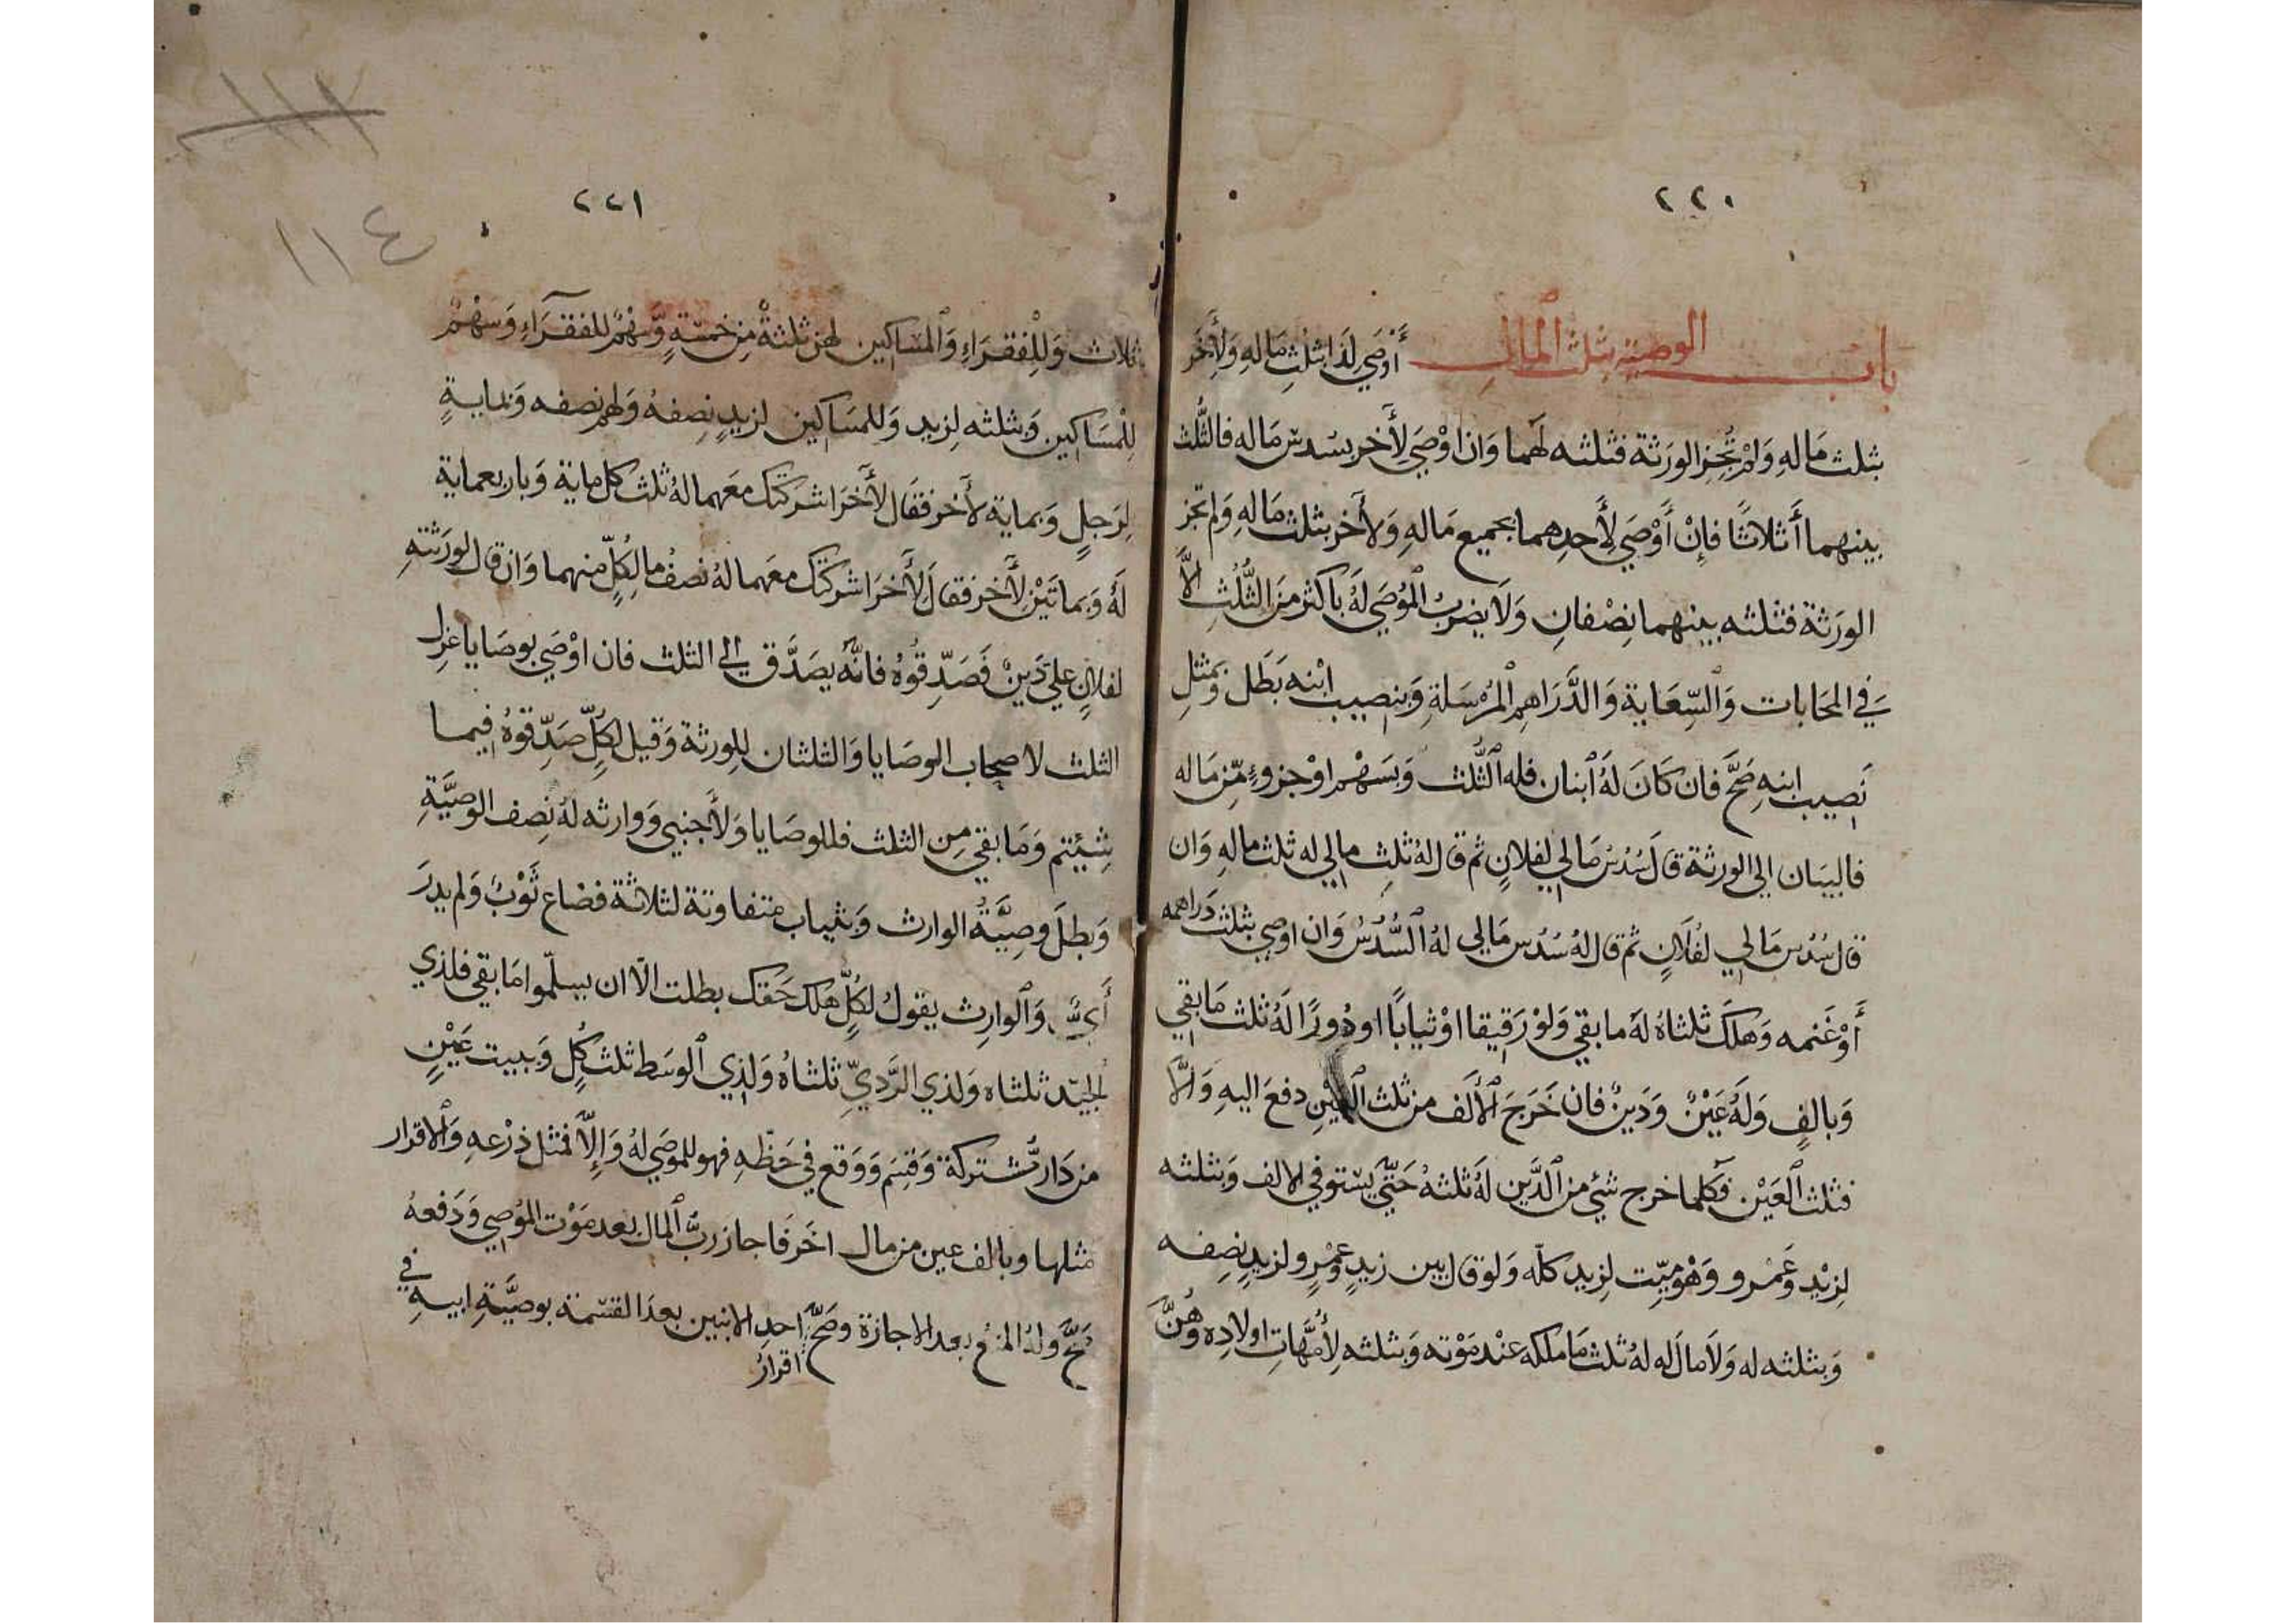 ٢٢٠
باب الوصية بثلث المال أَوْصَي لِذَا بثُلثِ مَالهِ وَلِأَخَرَ
بثلث مَالهِ وَلمْ تُجِزِ الورَثة فثلثه لهَما وَان اوْصَي لِأَخر بسُدسِ مَاله فالثُّلث
بينهما أَثلاثًا فإِنْ أَوْصَي لِأَحدِهما بجميع مَالهِ وَلأَخر بثلث مَالهِ وَلم تجز
الورَثة فثلثه بينهما نِصْفانِ وَلَا يضربُ المُوْصَي لَهُ باكثر مِنَ الثُّلُثِ الَّا
فِي المحَابات وَالسِّعَاية وَالدَّرَاهِم المُرْسَلةِ وَبنصيب ابْنه بَطَل وَبمثلِ
نَصيب ابنهِ صَحَّ فان كَانَ لَهُ ابنان فله الثُّلث وَبسَهْم اوْ جزوءٍ مّن مَاله
فالبيَان الي الورثة قال سُدُسُ مَالي لفلانٍ ثم قال لهُ ثلث مالي له ثلث مالهِ وَان
قال سُدُس مَالي لفُلَانٍ ثم قال لهُ سُدُس مَالي لهُ السُّدُسُ وَان اوصي بثلث دَراهمه
أَوْ غَنمه وَهلَكَ ثلثاهُ لهَ ما بقي وَلوْ رَقيقا اوْ ثيابًا او دُورًا لَهُ ثلث مَا بقي
وَبالفٍ وَلَهُ عَيْنٌ وَدَينٌ فان خَرَجَ الأَلف من ثلث العَيْنِ دفعَ اليهِ وَالَّا
فثلث العَيْن فكلما خرج شئ من الدَّين لَهُ ثلثهُ حَتّي يسْتوفي الالف وَبثلثه
لِزيْد وَعَمْرو وَهْوَ ميّت لِزيد كلّه وَلوْ قال بين زيدٍ وَعمْرٍو لزيدٍ نِصفه
وَبثلثه له وَلَا مالَ له لهُ ثلث مَا ملكه عنْد مَوْته وَبثلثه لِأُمَّهاتِ اولاده وَهُنَّ
٢٢١
ثلاث وَلِلْفقرَاءِ وَالمسَاكين لهن ثلثةٌ مِن خمسَةٍ وَّسَهْمٌ للفقرَآءِ وَسَهْمٌ
لِلْمسَاكين وَبثلثه لِزيد وَللمسَاكين لزيدٍ نِصفهُ وَلهم نصفه وَبمايةٍ
لِرَجلٍ وَبماية لأَخر فقَال لأَخَرَ اشركتك معَهما لهُ ثلث كل ماية وَباربعماية
لَهُ وَبماتَيْن لِأَخر فقال لِأَخَرَ اشركتك معهما لهُ نصفُ ما لِكُلٍّ منهما وَان قال لورَثتهِ
لفلانٍ علي دَينٌ فَصَدِّقوُهُ فانَّه يصَدَّق الي الثلث فان اوْصَي بوصَايا عُزِل
الثلث لاصحاب الوصَايا وَالثلثان لِلورثة وَقيل لكلٍّ صَدِّقوهُ فيما
شِئتم وَمَا بقي مِن الثلث فللوصَايا وَلأَجنبي وَوارثه لهُ نِصف الوصيَّةِ
وَبطلَ وصِيَّةُ الوارث وَبثياب متفاوتة لثلاثة فضاع ثَوْبٌ وَلم يدرَ
أَيٌّ وَالوارِث يقولُ لكلٍّ هَلك حَقك بطلت الّا ان يسلّموا مَا بقي فلذي
الجيّد ثلثاه وَلذي الرَّديِّ ثلثاهُ وَلِذي الوسَط ثلث كلٍّ وَببيت عَيْنٍ
من دَار مّشتركة وَقسِمَ وَوَقع في حَظّهِ فهو للموصَي لهُ وَإِلّا فمثل ذرْعهِ وَالاقرار
مثلها وبالف عين من مال اخَرَ فَاجاز ربُّ المال بعد مَوْت المُوصي وَدَفعهُ
صَحَّ وَلهُ المنعُ بعد الاجازة وصَحَّ احدِ الابنين بعد القسمة بوصيَّةِ ابيهِ في
اقرارُ
١١٤